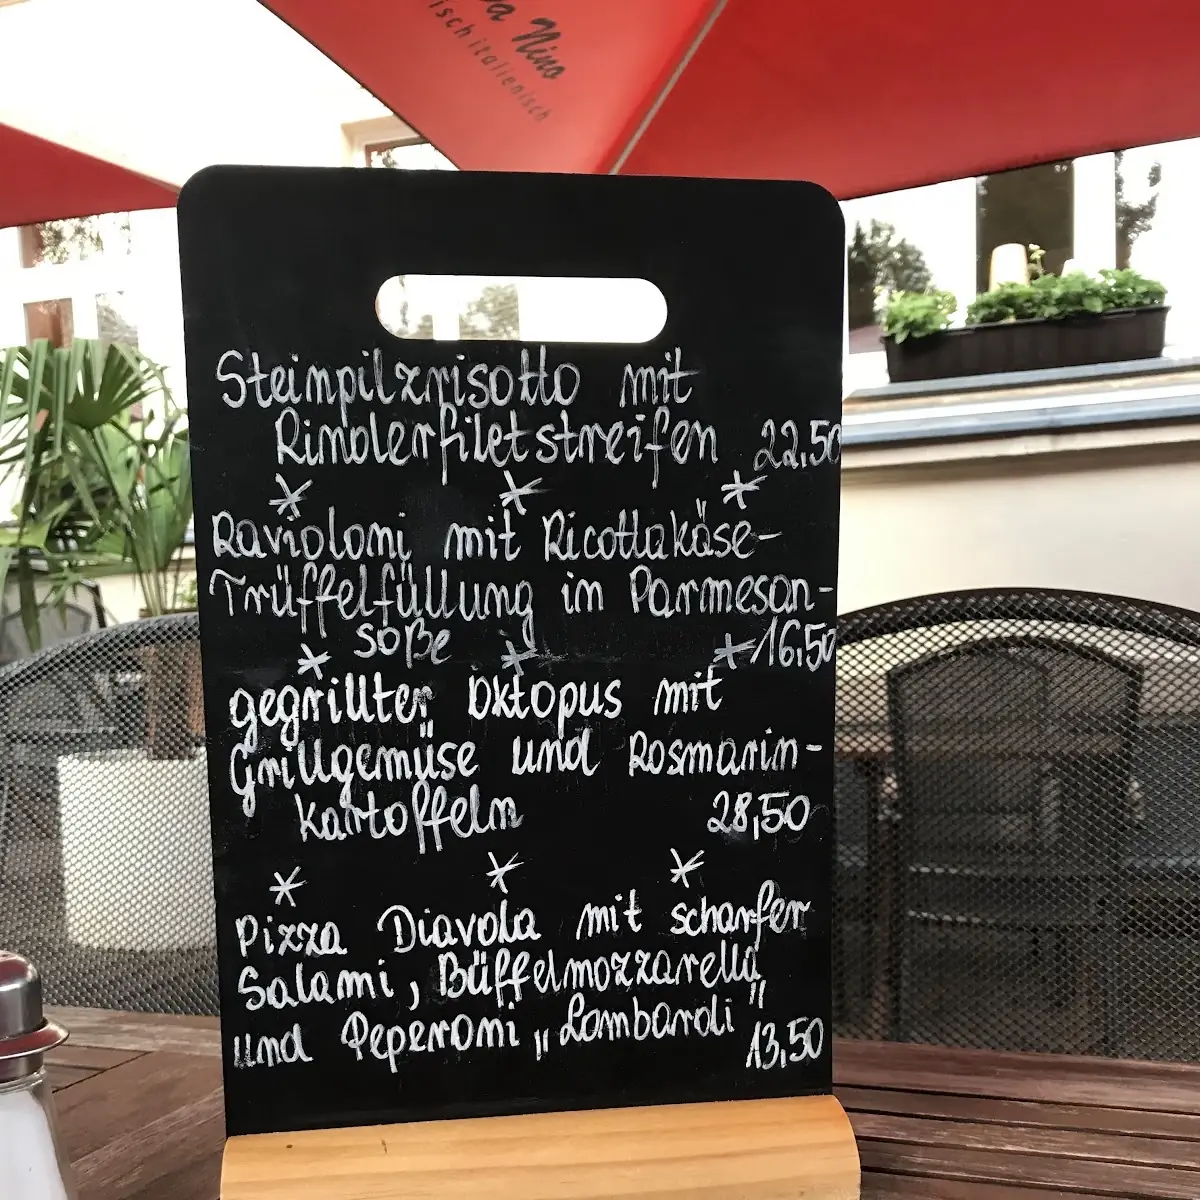 Nino
italienisch
Steinpilzrisotto mit
Rinderfiletstreifen 22,50
Ravioloni mit Ricottakäse-
Trüffelfüllung in Parmesan-
soße 16,50
gegrillter Oktopus mit
Grillgemüse und Rosmarin-
kartoffeln 28,50
Pizza Diavola mit scharfer
Salami, Büffelmozzarella
und Peperoni „Lombardi" 13,50